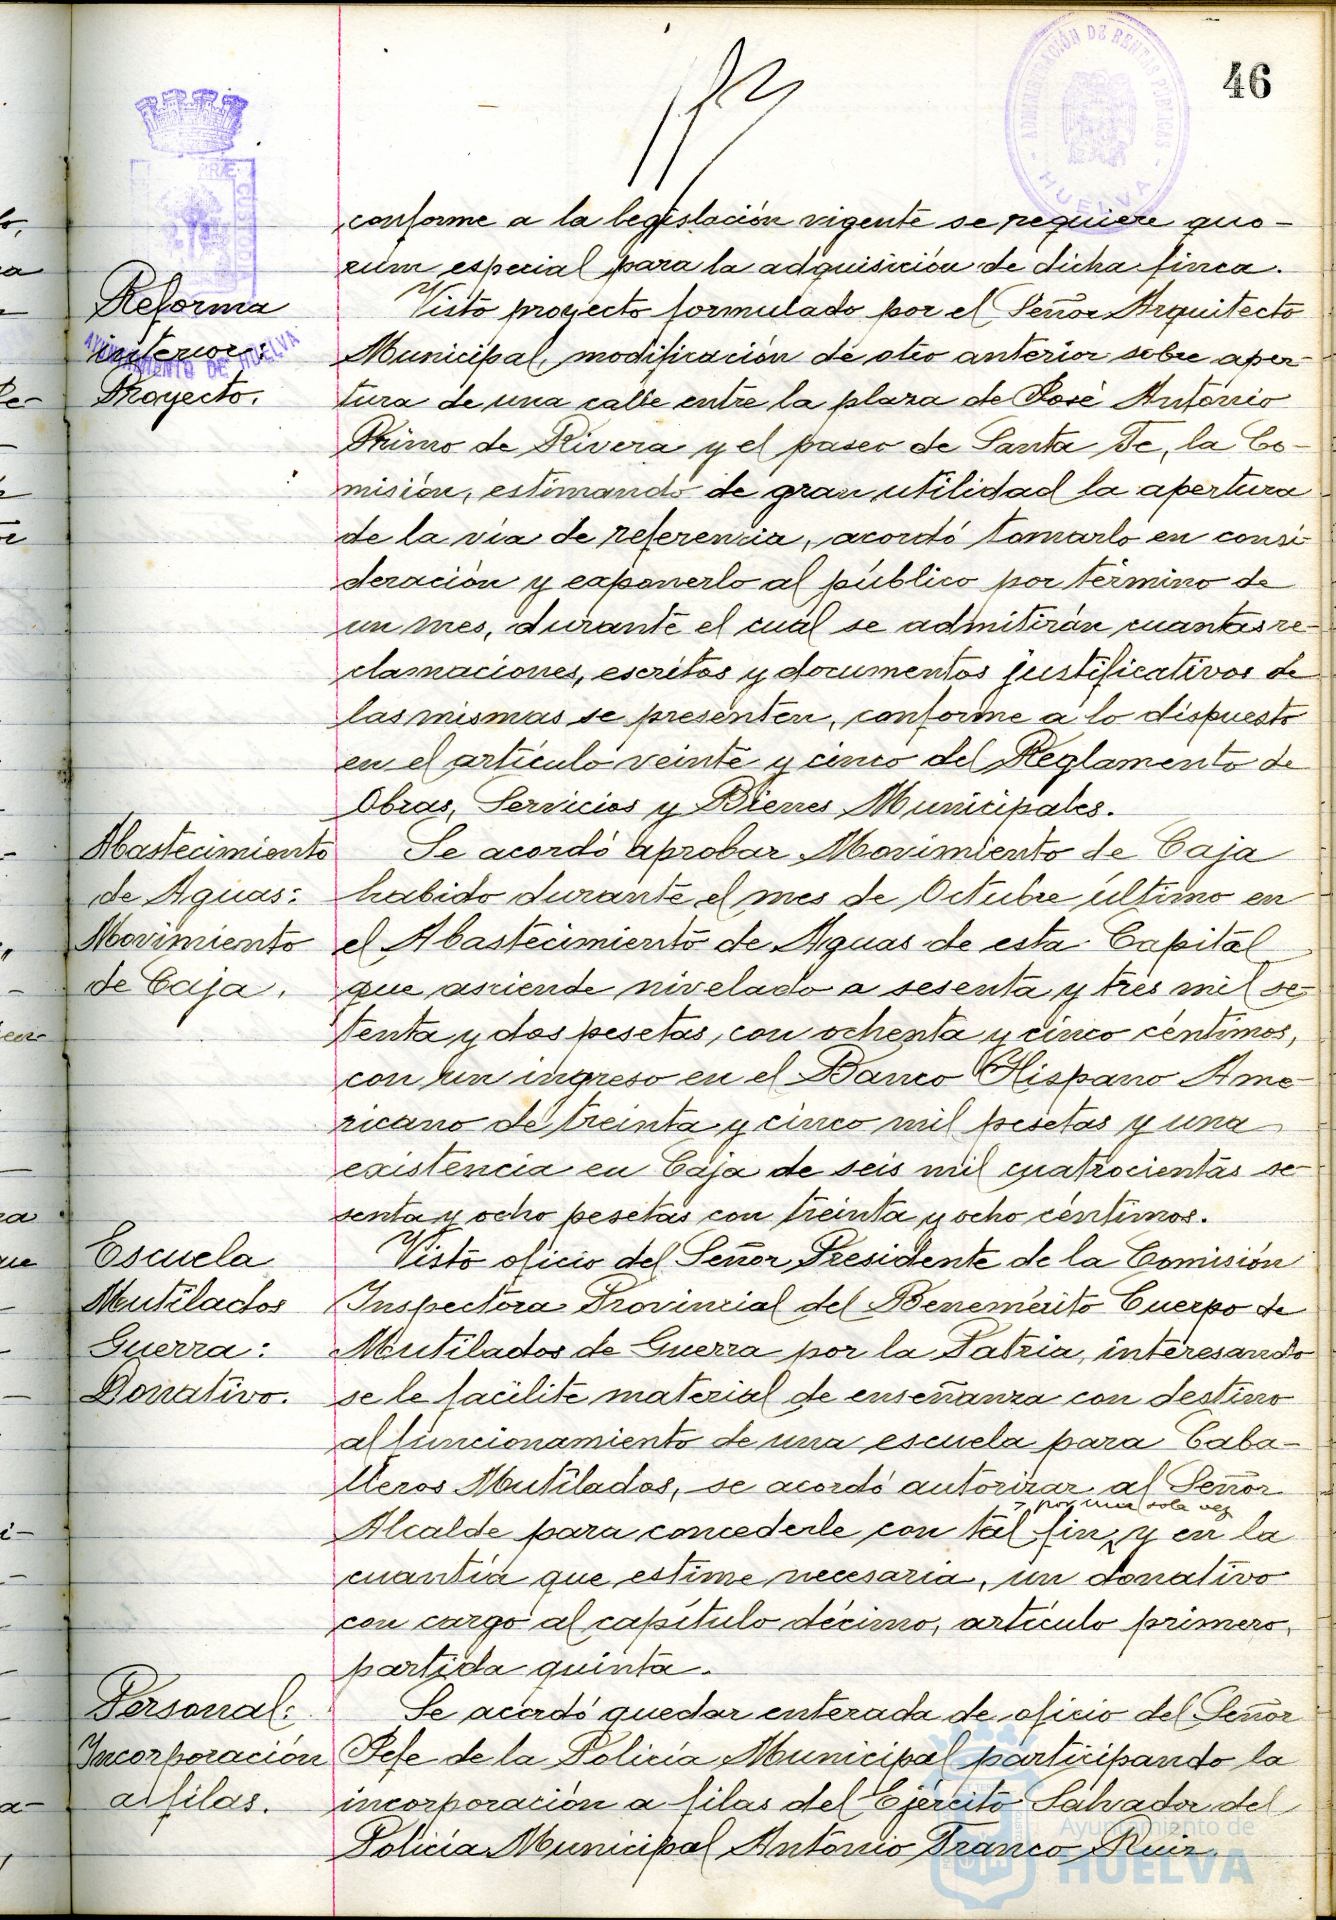 46
ADMINISTRACIÓN DE RENTAS PÚBLICAS
HUELVA
CUSTODIA
AYUNTAMIENTO DE HUELVA
conforme a la legislación vigente se requiere quo-
rum especial para la adquisición de dicha finca.
Reforma
interior:
Proyecto.
Visto proyecto formulado por el Señor Arquitecto
Municipal, modificación de otro anterior sobre aper-
tura de una calle entre la plaza de José Antonio
Primo de Rivera y el paseo de Santa Fe, la Co-
misión, estimando de gran utilidad la apertura
de la vía de referencia, acordó tomarlo en consi-
deración y exponerlo al público por término de
un mes, durante el cual se admitirán cuantas re-
clamaciones, escritos y documentos justificativos de
las mismas se presenten, conforme a lo dispuesto
en el artículo veinte y cinco del Reglamento de
Obras, Servicios y Bienes Municipales.
Abastecimiento
de Aguas:
Movimiento
de Caja.
Se acordó aprobar Movimiento de Caja
habido durante el mes de Octubre último en
el Abastecimiento de Aguas de esta Capital
que asciende nivelado a sesenta y tres mil se-
tenta y dos pesetas, con ochenta y cinco céntimos,
con un ingreso en el Banco Hispano Ame-
ricano de treinta y cinco mil pesetas y una
existencia en Caja de seis mil cuatrocientas se-
senta y ocho pesetas con treinta y ocho céntimos.
Escuela
Mutilados
Guerra:
Donativo.
Visto oficio del Señor Presidente de la Comisión
Inspectora Provincial del Benemérito Cuerpo de
Mutilados de Guerra por la Patria, interesando
se le facilite material de enseñanza con destino
al funcionamiento de una escuela para Caba-
lleros Mutilados, se acordó autorizar al Señor
y por una sola vez
Alcalde para concederle con tal fin, y en la
cuantía que estime necesaria, un donativo
con cargo al capítulo décimo, artículo primero,
partida quinta.
Personal:
Incorporación
a filas.
Se acordó quedar enterada de oficio del Señor
Jefe de la Policía Municipal participando la
incorporación a filas del Ejército Salvador del
Policía Municipal Antonio Franco Ruiz.
Ayuntamiento de
HUELVA